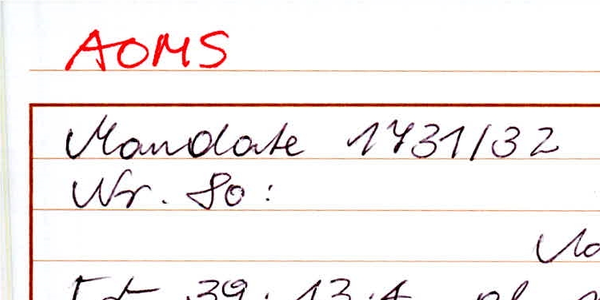 AOMS
Mandate 1731/32
Nr. 80:
39: 13